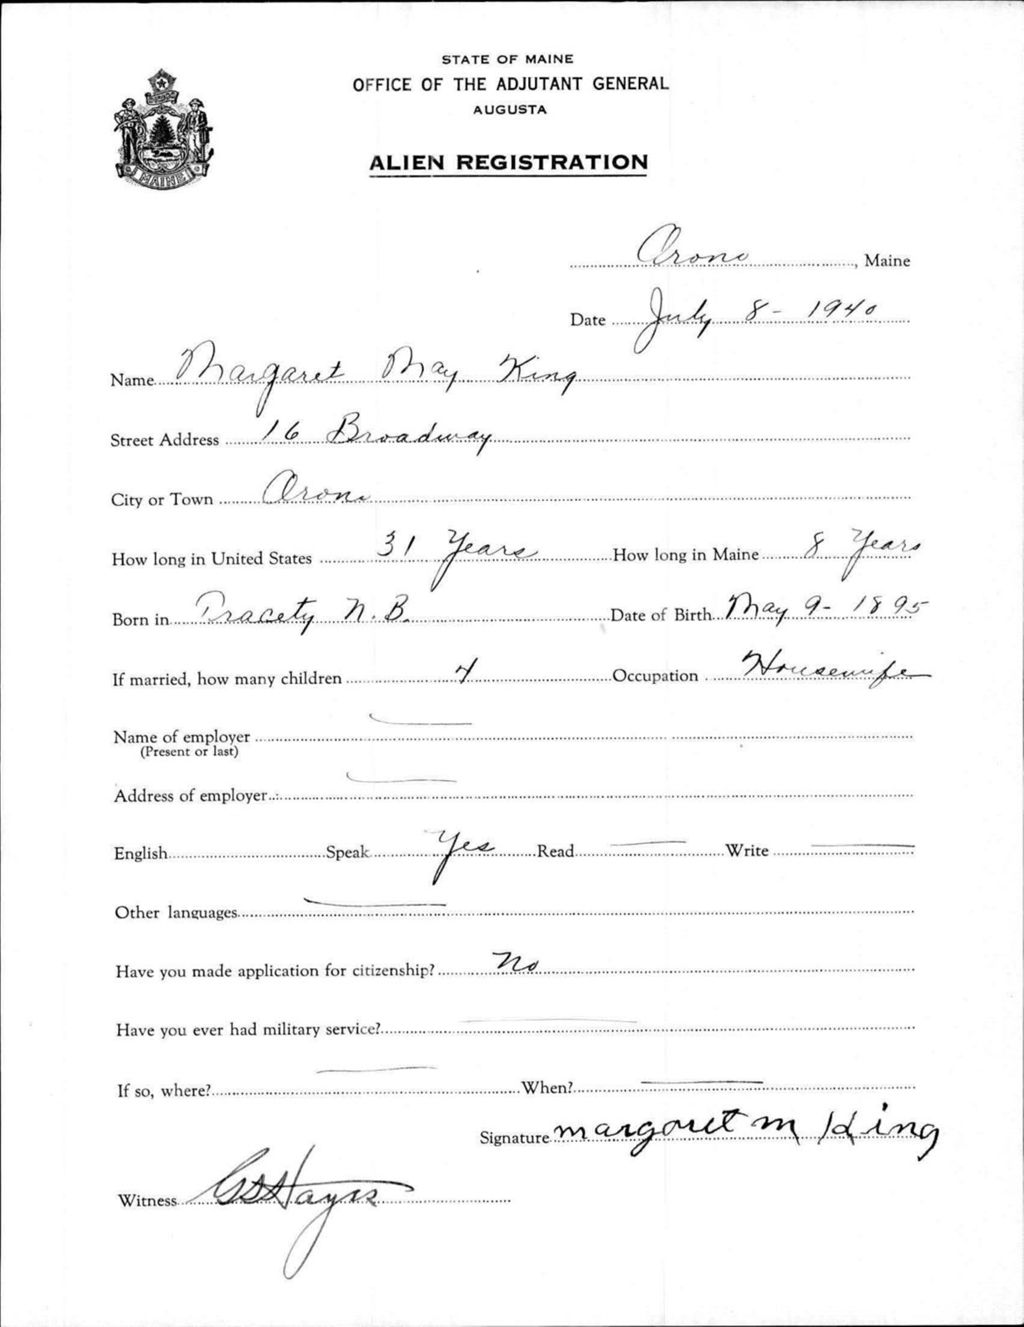 STATE OF MAINE
OFFICE OF THE ADJUTANT GENERAL
AUGUSTA
ALIEN REGISTRATION
MAINE
Orono, Maine
Date July 8 - 1940
Name Margaret May King
Street Address 16 Broadway
City or Town Orono
How long in United States 31 Years How long in Maine 8 Years
Born in Tracety N.B. Date of Birth May 9 - 1895
If married, how many children 4 Occupation Housewife
Name of employer
(Present or last)
Address of employer
English Speak Yes Read Write
Other languages
Have you made application for citizenship? No
Have you ever had military service?
If so, where? When?
Signature margaret m King
Witness Hayes